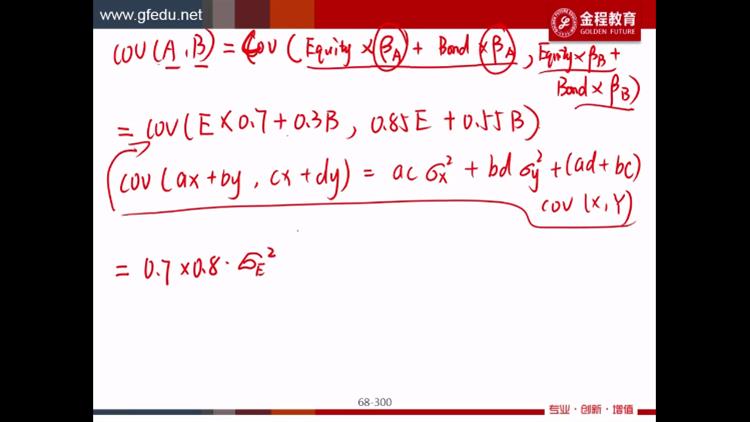 www.gfedu.net
金程教育
GOLDEN FUTURE
COV(A,B) = COV(Equity×βA + Bond×βA, Equity×βB +
Bond×βB)
= COV(E×0.7+0.3B, 0.85E+0.55B)
COV(ax+by, cx+dy) = acσx²+bdσy²+(ad+bc)
COV(X,Y)
= 0.7×0.8·σE²
68-300
专业·创新·增值